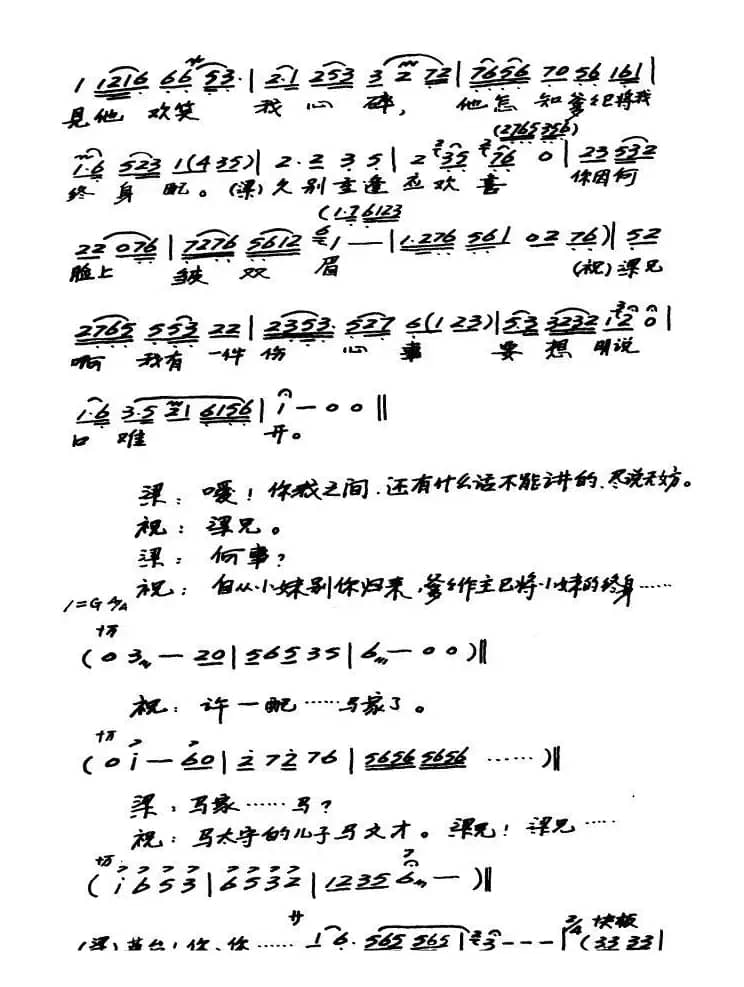 1 1216 66 53.|2.1 253 3 2 72|7656 70 56 161|
見他 欢笑 我 心 碎, 他怎 知爹已将我
(2765 356)
1.6 523 1(4 35)|2.2 3 5|2 35 76 0|23 532
终 身 配。(梁)久别重逢应欢喜 你因何
(1.76123
22 076|7276 5612 1 —|1.276 561 02 76)|52
脸上 皱 双 眉 (祝)梁兄
2765 553 22|2353. 527 6(1 23)|5.3 3232 12 0|
啊 我有 一件 伤 心 事 要 想 明说
1.6 3.5 21 6156|i — 0 0‖
口 难 开。
梁:嗳!你我之间.还有什么话不能讲的、尽说无妨。
祝:梁兄。
梁:何事?
祝:自从小妹别你归来,爹爹作主已将小妹的终身……
1=G 4/4
(0 3 — 20|5653 5|6 — 0 0)‖
祝:许一配……马家了。
(0 i — 60|2 7276|5656 5656 ……)‖
梁:马家……马?
祝:马太守的儿子马文才。梁兄!梁兄……
(i 6 5 3|6 5 3 2|1235 6 —)‖
サ 2/4 快板
(梁)英台!你、你…… 1 6. 565 565|3 - - -|(33 33|